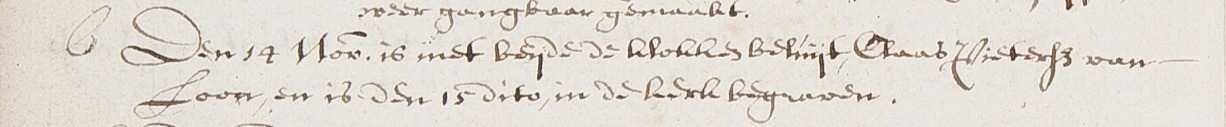 weer gangbaar gemaakt.
6 Den 14 Nov. is met beijde de klokken beluijt, Claas Pietersz van
Loon, en is den 15 dito, in de kerk begraven.